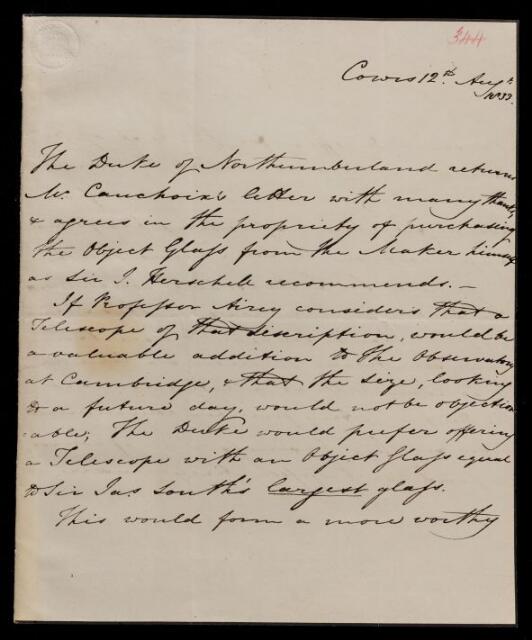 344
Cowes 12th Augt
1833.
The Duke of Northumberland returns
Mr. Cauchoix's letter with many thanks,
& agrees in the propriety of purchasing
the Object Glass from the Maker himself
as Sir J. Herschell recommends. –
If Professor Airey considers that a
Telescope of that discription, would be
a valuable addition to the Observatory
at Cambridge, & that the size, looking
to a future day, would not be objection
able; The Duke would prefer offering
a Telescope with an Object Glass equal
to Sir Jas South's largest glass.
This would form a more worthy